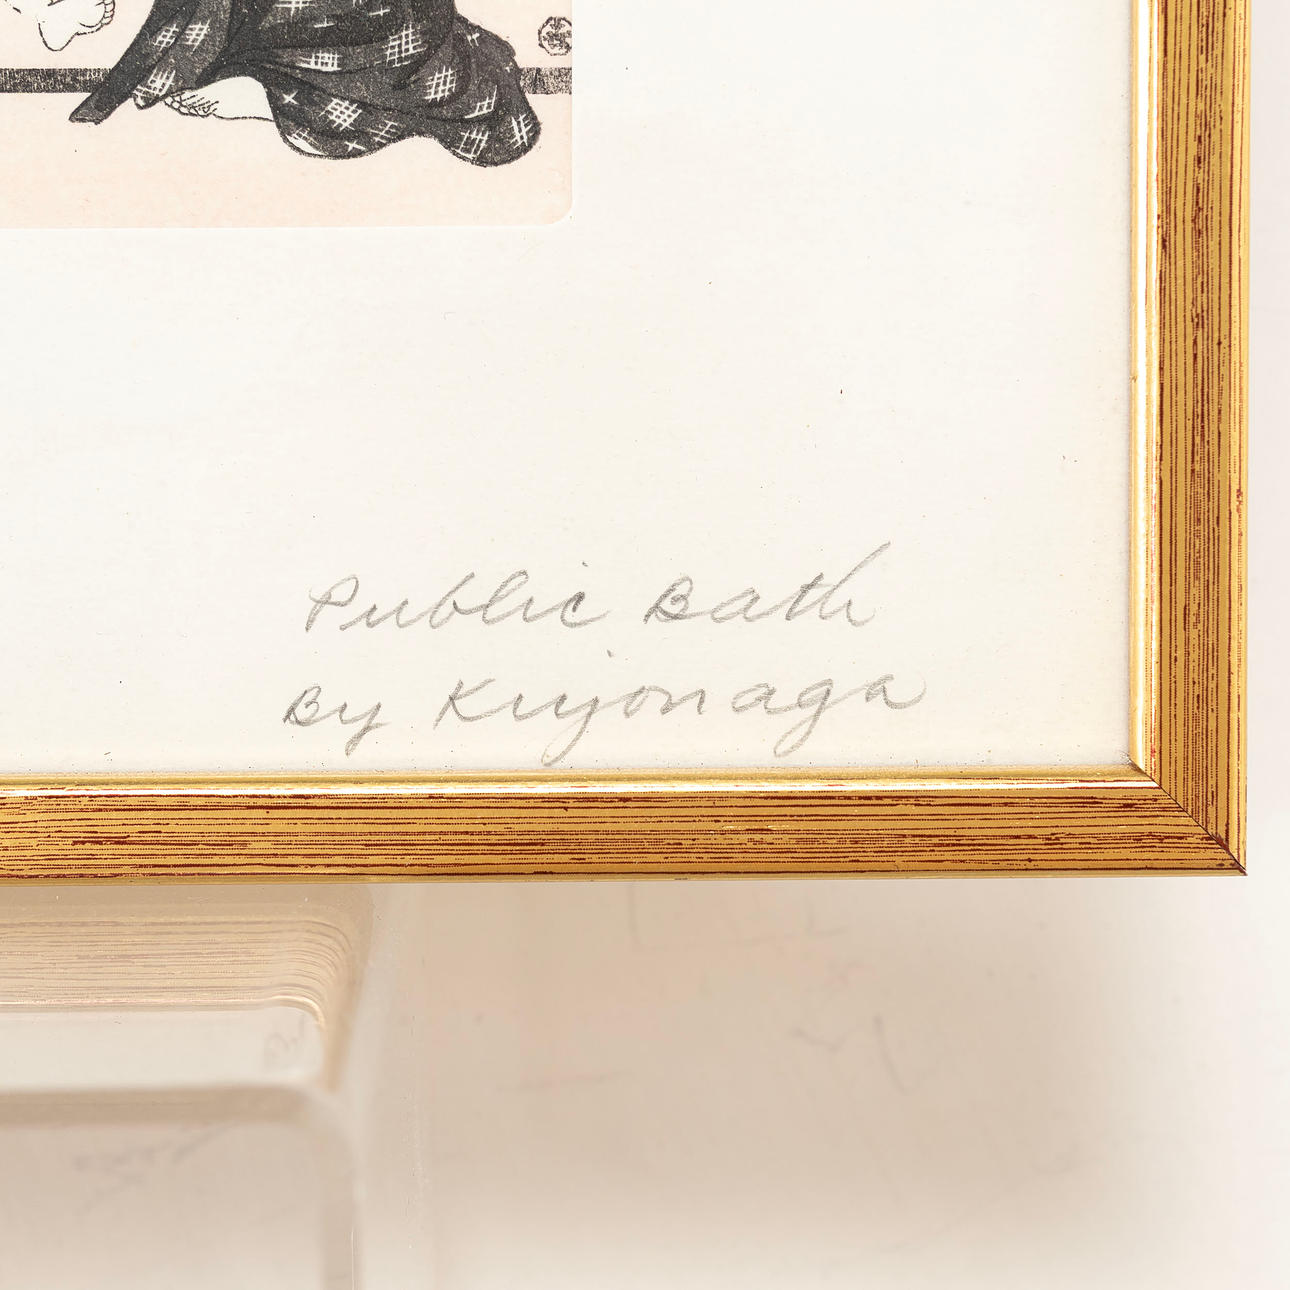 Public Bath
By Kiyonaga